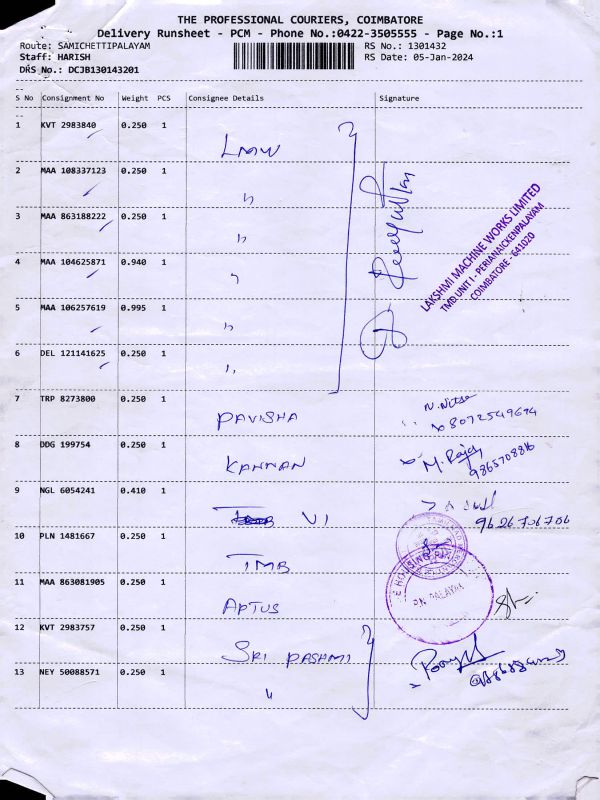 THE PROFESSIONAL COURIERS, COIMBATORE
Delivery Runsheet - PCM - Phone No.:0422-3505555 - Page No.:1
Route: SAMICHETTIPALAYAM RS No.: 1301432
Staff: HARISH RS Date: 05-Jan-2024
DRS No.: DCJB130143201
--
S No Consignment No Weight PCS Consignee Details Signature
--
1 KVT 2983840 0.250 1 LMW
2 MAA 108337123 0.250 1 "
3 MAA 863188222 0.250 1 "
4 MAA 104625871 0.940 1 "
5 MAA 106257619 0.995 1 "
6 DEL 121141625 0.250 1 "
LAKSHMI MACHINE WORKS LIMITED
TMD UNIT I - PERIANAICKENPALAYAM
COIMBATORE - 641020
7 TRP 8273800 0.250 1 PAVISHA
8 DDG 199754 0.250 1 KANNAN M. Raja
9 NGL 6054241 0.410 1 VI
9626706706
10 PLN 1481667 0.250 1 TMB
11 MAA 863081905 0.250 1 APTUS
P.N. PALAYAM
12 KVT 2983757 0.250 1 SRI RASHMI
13 NEY 50088571 0.250 1 "